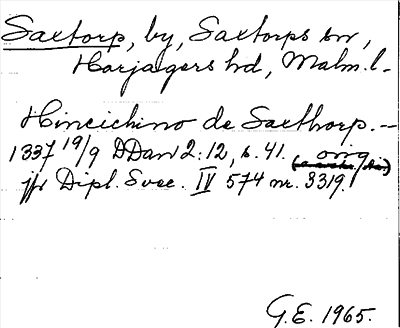 Saxtorp, by, Saxtorps sn,
Harjagers hd, Malm. l.
Hincichino de Saxthorp. —
1337 19/9 DDan 2:12, s. 41. orig
jfr Dipl. Svec. IV 574 nr. 3319.
G.E. 1965.